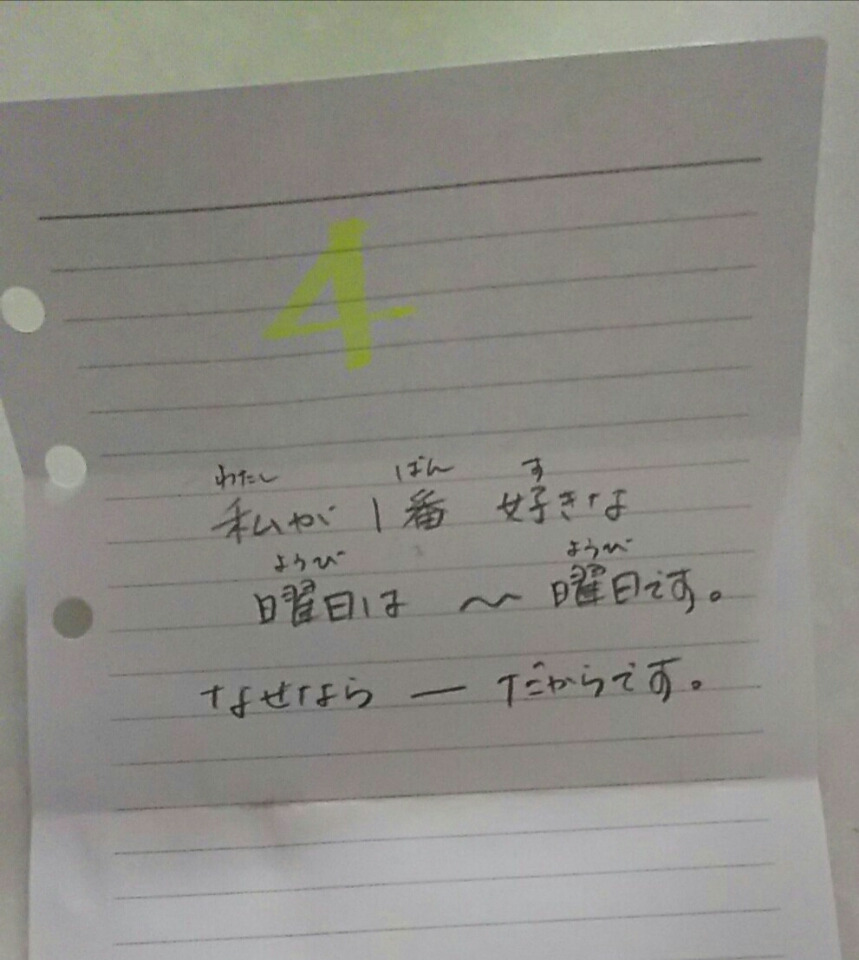 4
わたし ばん す
私が 1番 好きな
ようび ようび
曜日は 〜 曜日です。
なせなら — だからです。